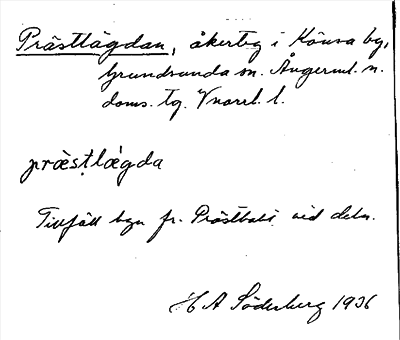 Prästtägdan, åkerteg i Könsa by,
Grundsunda sn. Ångerml. n.
doms. tg. Vnorrl. l.
præ̀sṭlæ̀gda
Tillföll byn fr. Prästbol vid deln.
H A Söderberg 1936